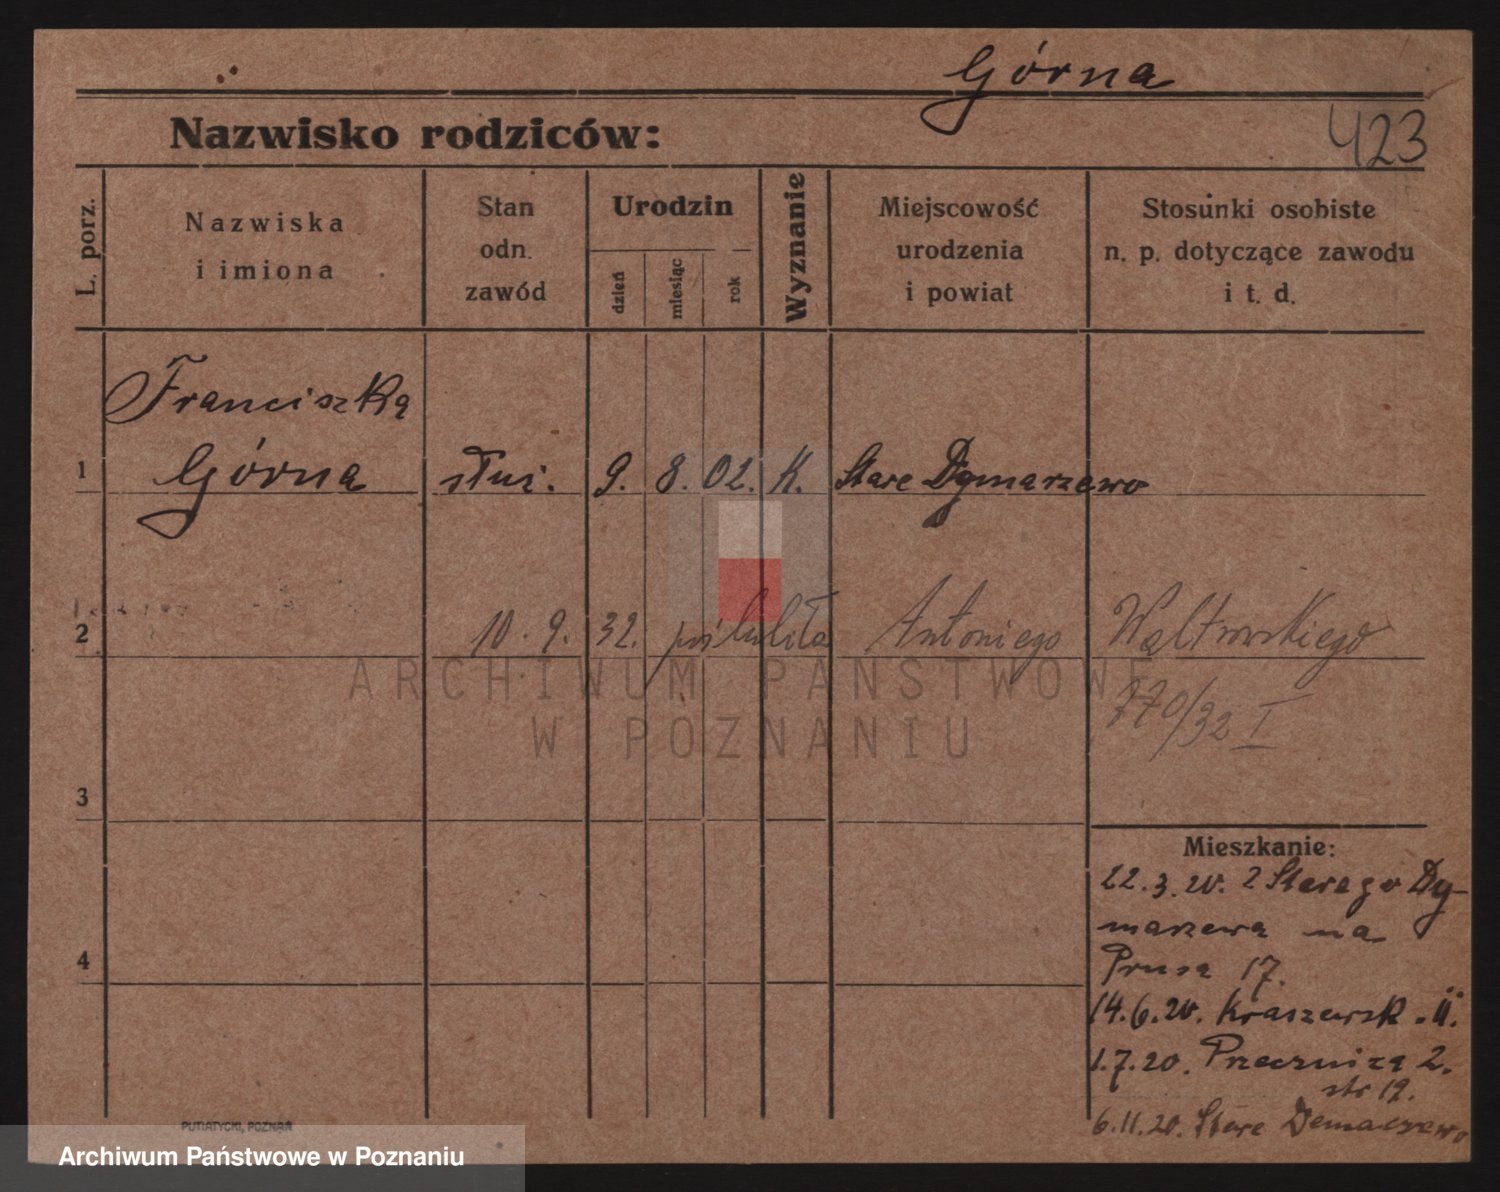 Górna
423
Nazwisko rodziców:
L. porz.
Nazwiska
i imiona
Stan
odn.
zawód
Urodzin
dzień
miesiąc
rok
Wyznanie
Miejscowość
urodzenia
i powiat
Stosunki osobiste
n. p. dotyczące zawodu
i t. d.
Franciszka
1 Górna służ. 9. 8. 02. K. Stare Dymarzewo
2 10. 9. 32. poślubiła Antoniego
770/32 I
3
Mieszkanie:
22.3.20. z Starego Dy-
marzewa na
4
Prusa 17.
14.6.20. Kraszewsk. 11.
1.7.20. 2.
str 19.
6.11.20. Stare
PUTIATYCKI, POZNAŃ
ARCHIWUM PAŃSTWOWE
W POZNANIU
Archiwum Państwowe w Poznaniu